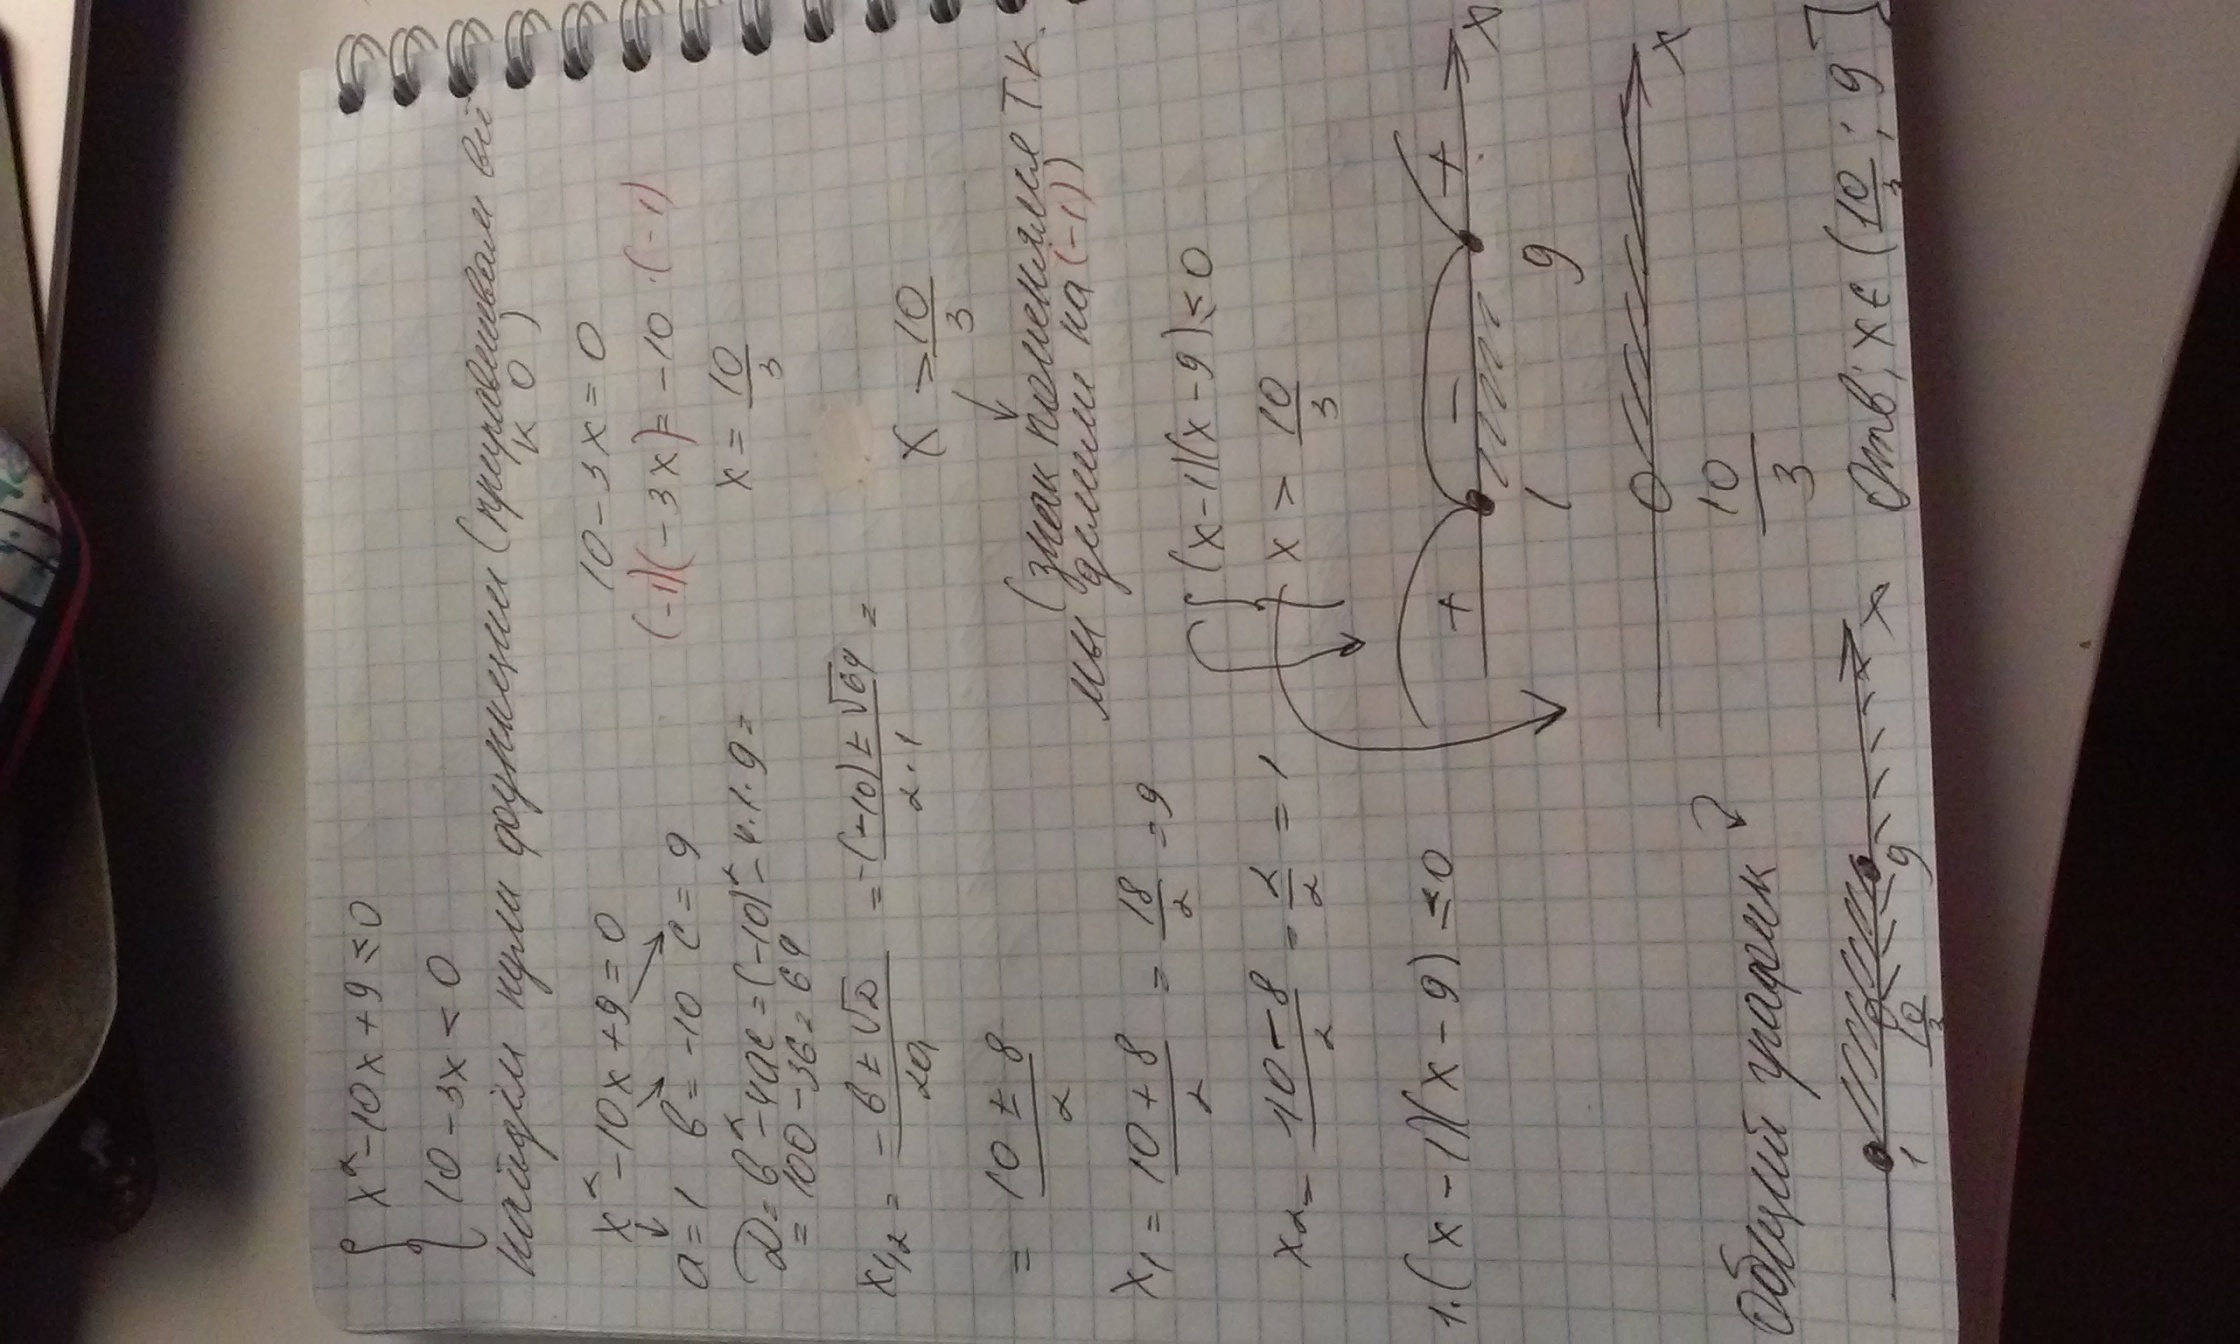 { x² - 10x + 9 ≤ 0
10 - 3x < 0
найдём нули функции (приравниваем всё
к 0)
x² - 10x + 9 = 0
a = 1 b = -10 c = 9
D = b² - 4ac = (-10)² - 4·1·9 =
= 100 - 36 = 64
x₁,₂ = -b ± √D / 2a = -(-10) ± √64 / 2·1 =
= 10 ± 8 / 2
x₁ = 10 + 8 / 2 = 18 / 2 = 9
x₂ = 10 - 8 / 2 = 2 / 2 = 1
1·(x - 1)(x - 9) ≤ 0
10 - 3x = 0
(-1)(-3x) = -10·(-1)
x = 10/3
x > 10/3
(знак поменялся т.к.
мы делим на (-1))
{ (x - 1)(x - 9) ≤ 0
x > 10/3
+ - + x
1 9
x
10/3
Общий график
x
1 10/3 9
Отв; x ∈ (10/3; 9]